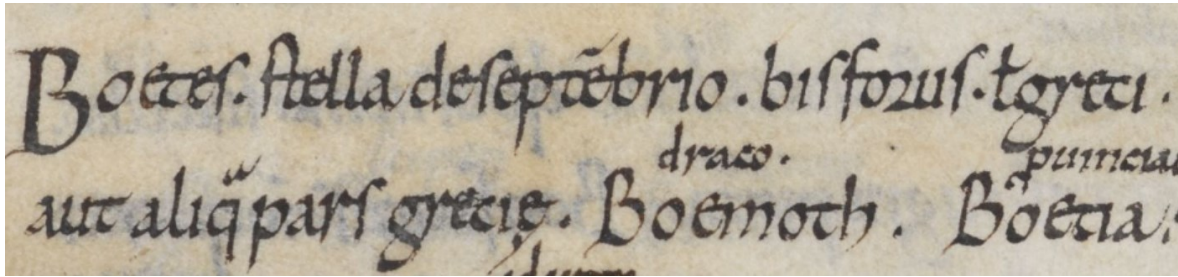 Boetes. stella deseptēbrio. bisforus. ł greci.
draco. puincia
aut aliq̄ pars grecię. Boemoth. Boetia: